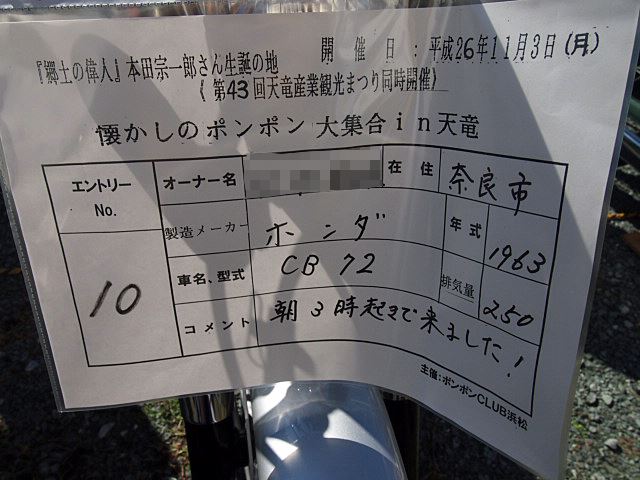 『郷土の偉人』本田宗一郎さん生誕の地 開催日:平成26年11月3日(月)
《第43回天竜産業観光まつり同時開催》
懐かしのポンポン大集合in天竜
エントリーNo.
10
オーナー名 在住 奈良市
製造メーカー ホンダ 年式 1963
車名、型式 CB72 排気量 250
コメント 朝3時起きで来ました!
主催:ポンポンCLUB浜松